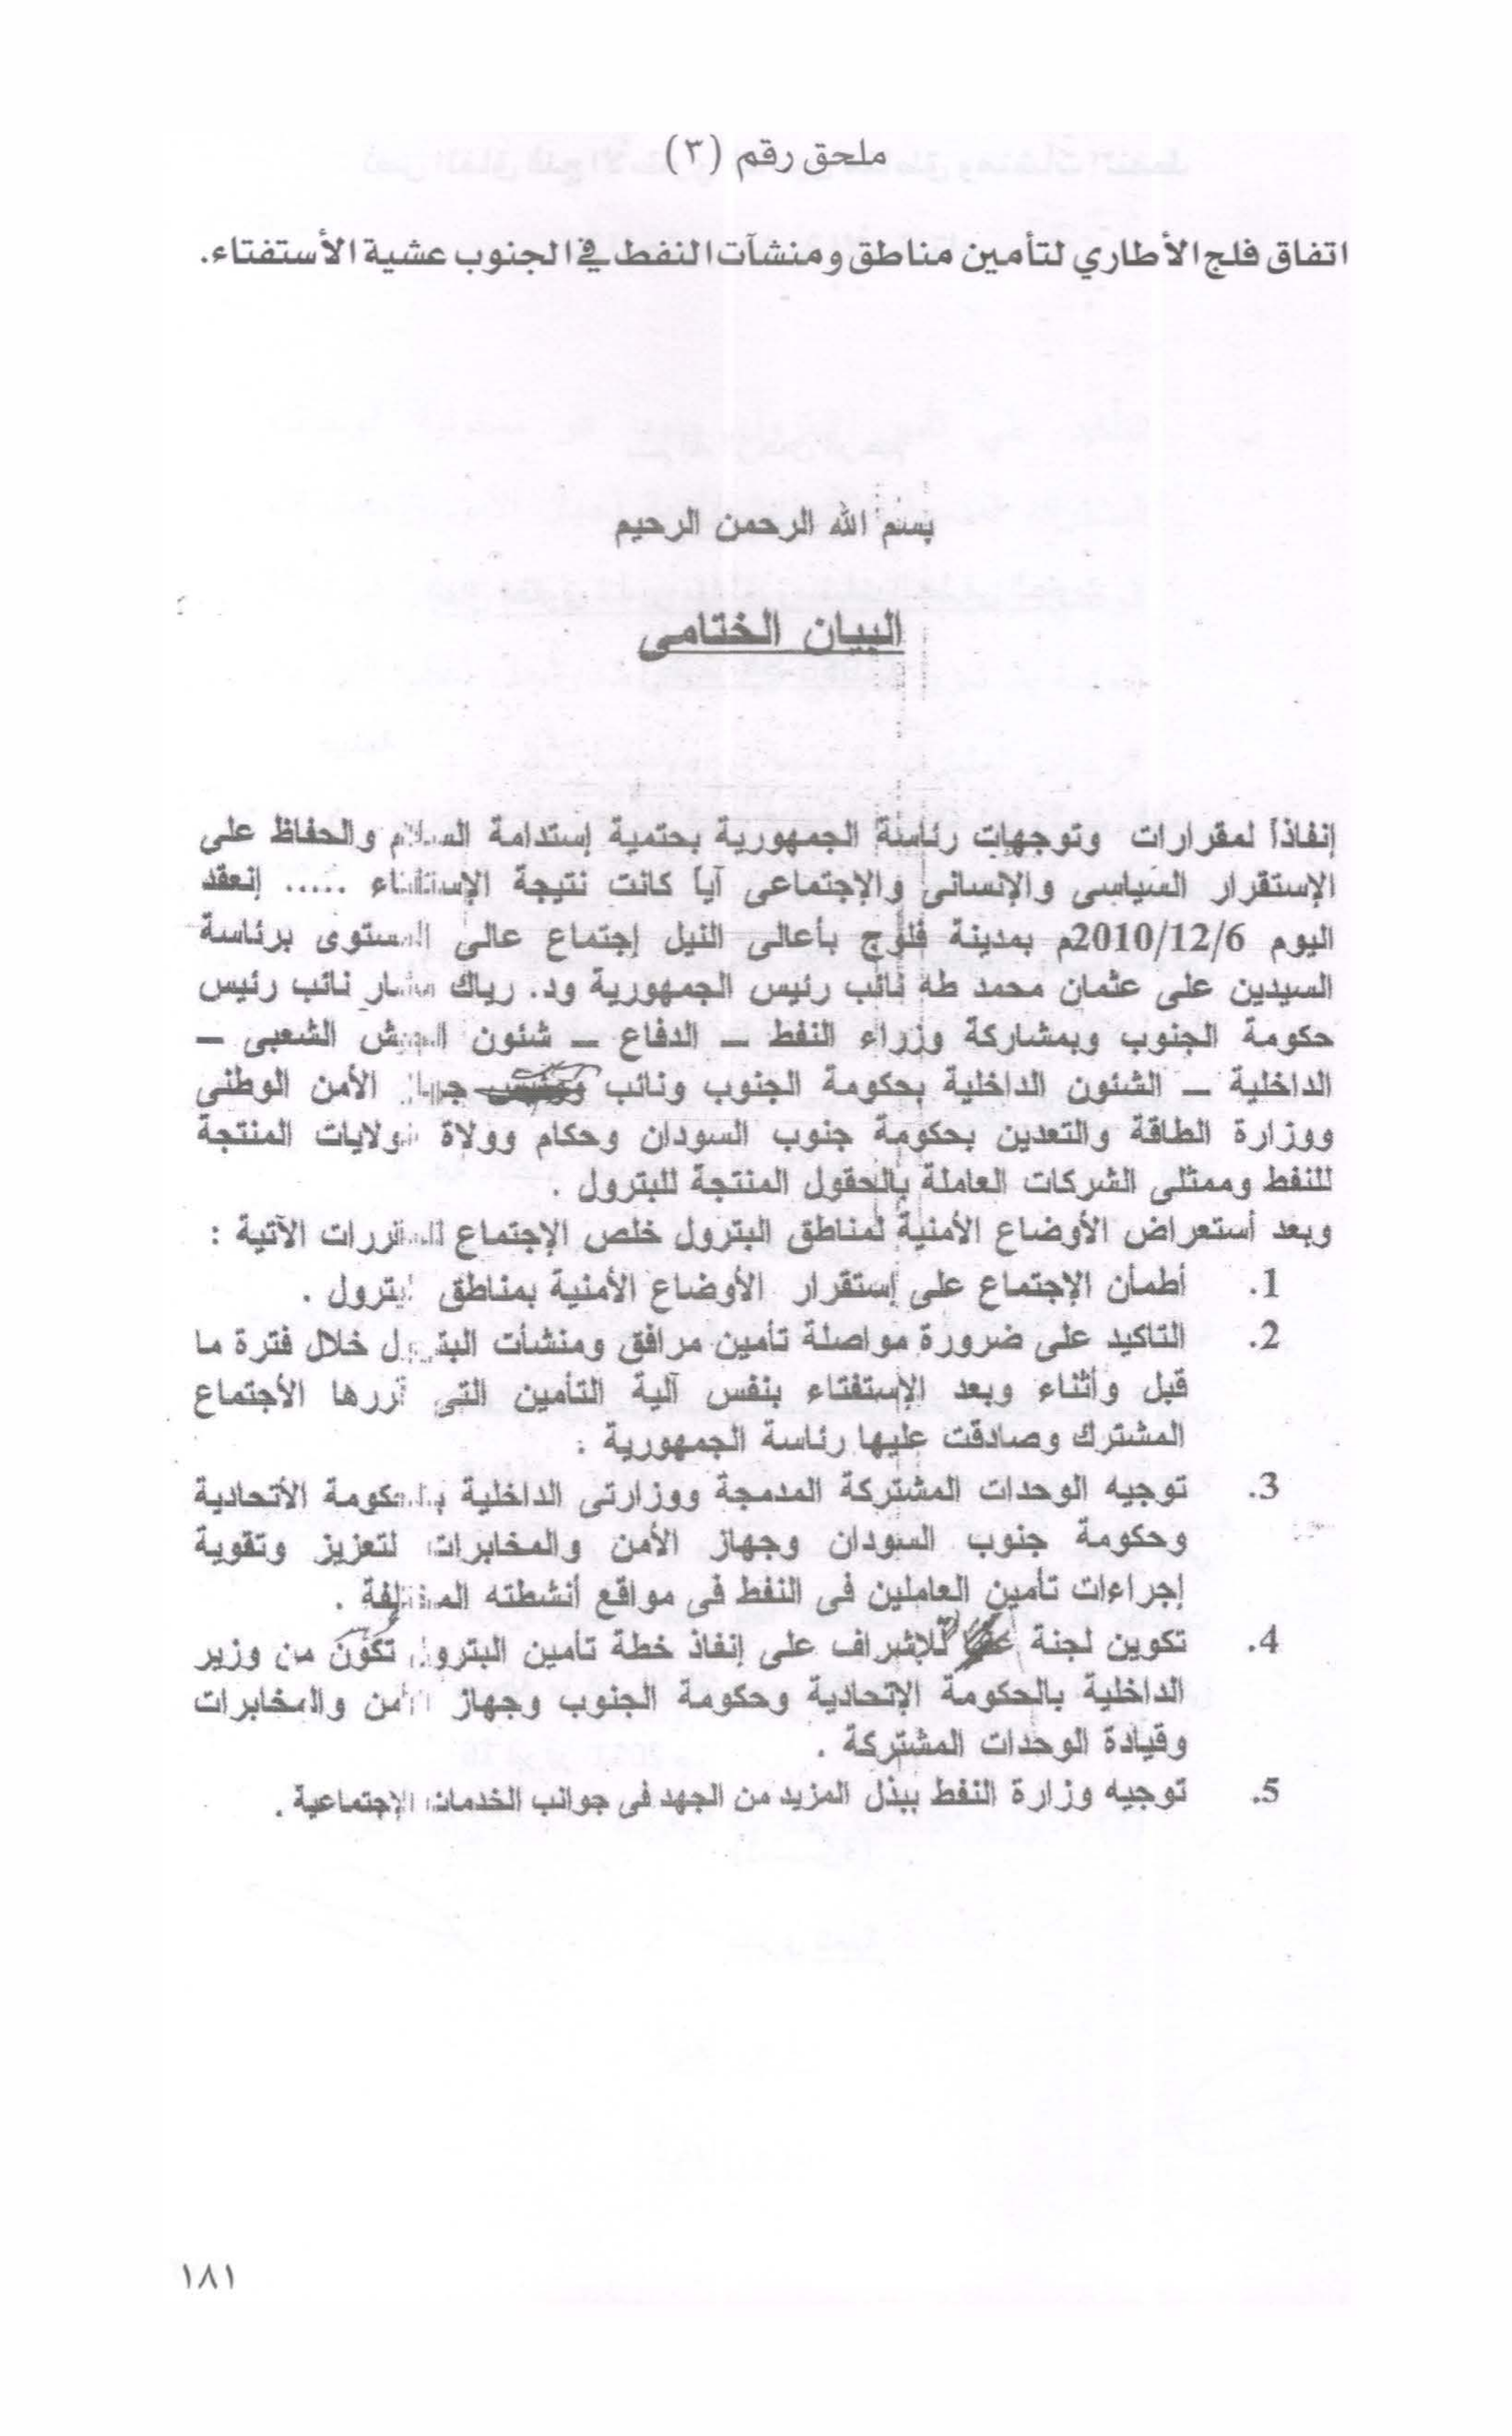 ملحق رقم (٣)
اتفاق فلج الأطاري لتأمين مناطق ومنشآت النفط في الجنوب عشية الأستفتاء.
بسم الله الرحمن الرحيم
البيان الختامى
إنفاذاً لمقرارات وتوجهات رئاسة الجمهورية بحتمية إستدامة السلام والحفاظ على
الإستقرار السياسى والإنسانى والإجتماعى آياً كانت نتيجة الإستفتاء ..... إنعقد
اليوم 2010/12/6م بمدينة فلوج بأعالى النيل إجتماع عالى المستوى برئاسة
السيدين على عثمان محمد طه نائب رئيس الجمهورية ود. رياك مشار نائب رئيس
حكومة الجنوب وبمشاركة وزراء النفط – الدفاع – شئون الجيش الشعبى –
الداخلية – الشئون الداخلية بحكومة الجنوب ونائب جهاز الأمن الوطنى
ووزارة الطاقة والتعدين بحكومة جنوب السودان وحكام وولاة الولايات المنتجة
للنفط وممثلى الشركات العاملة بالحقول المنتجة للبترول .
وبعد أستعراض الأوضاع الأمنية لمناطق البترول خلص الإجتماع للمقررات الآتية :
1. أطمأن الإجتماع على إستقرار الأوضاع الأمنية بمناطق البترول .
2. التاكيد على ضرورة مواصلة تأمين مرافق ومنشأت البترول خلال فترة ما
قبل وأثناء وبعد الإستفتاء بنفس آلية التأمين التى قررها الأجتماع
المشترك وصادقت عليها رئاسة الجمهورية .
3. توجيه الوحدات المشتركة المدمجة ووزارتى الداخلية بالحكومة الأتحادية
وحكومة جنوب السودان وجهاز الأمن والمخابرات لتعزيز وتقوية
إجراءات تأمين العاملين فى النفط فى مواقع أنشطته المختلفة .
4. تكوين لجنة للإشراف على إنفاذ خطة تأمين البترول تكون من وزير
الداخلية بالحكومة الإتحادية وحكومة الجنوب وجهاز الأمن والمخابرات
وقيادة الوحدات المشتركة .
5. توجيه وزارة النفط ببذل المزيد من الجهد فى جوانب الخدمات الإجتماعية .
١٨١